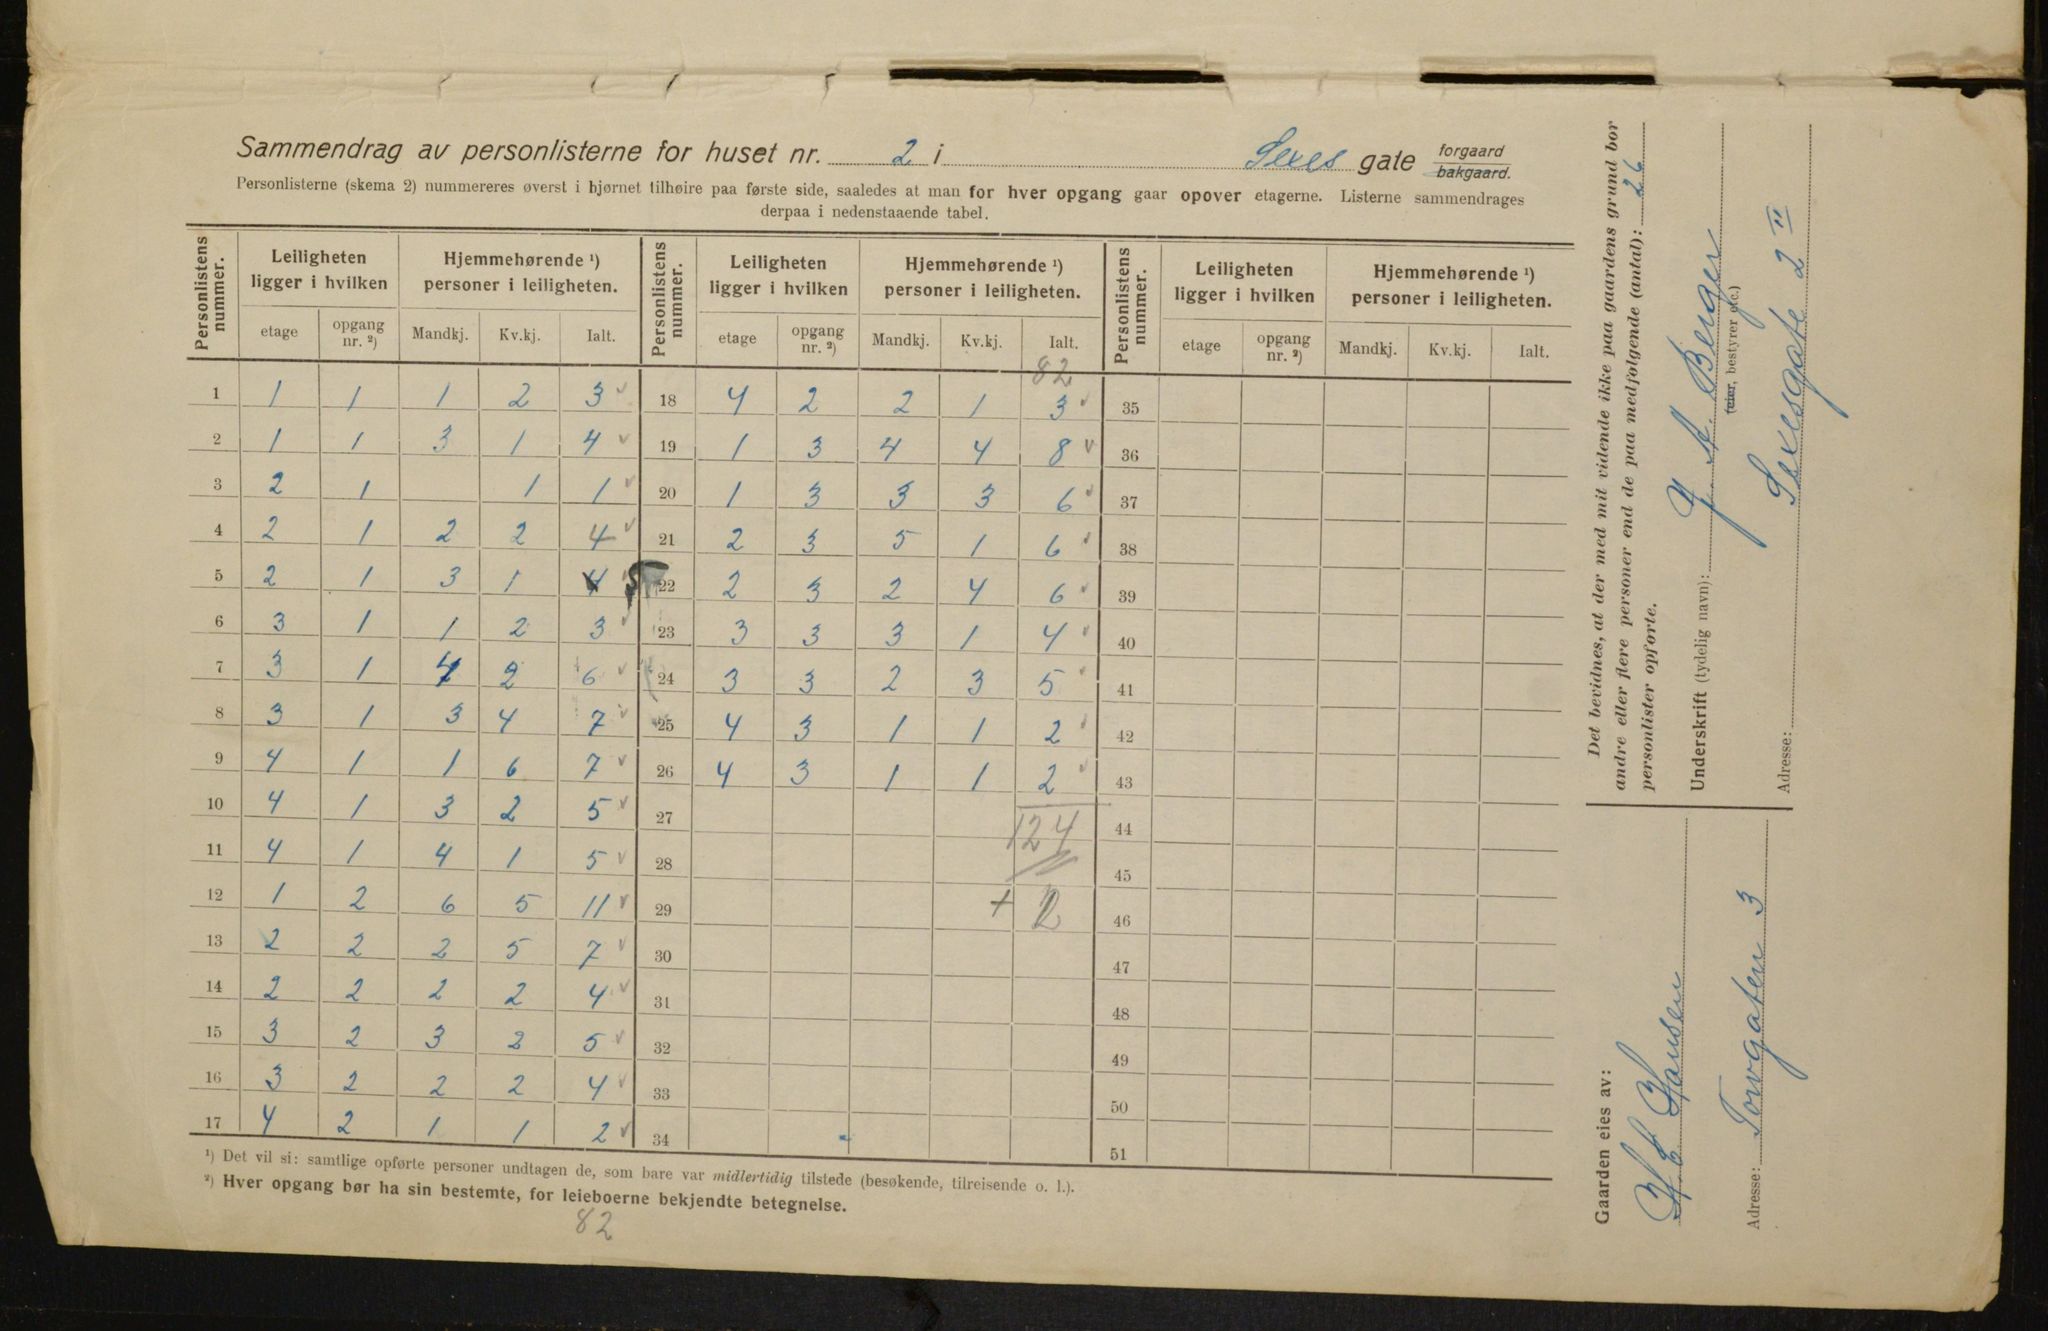 Sammendrag av personlisterne for huset nr. 2 i Sexes gate forgaard bakgaard.
Personlisterne (skema 2) nummereres øverst i hjørnet tilhøire paa første side, saaledes at man for hver opgang gaar opover etagerne. Listerne sammendrages
derpaa i nedenstaaende tabel.
Personlistens nummer. Leiligheten ligger i hvilken Hjemmehørende ¹) personer i leiligheten. Personlistens nummer. Leiligheten ligger i hvilken Hjemmehørende ¹) personer i leiligheten. Personlistens nummer. Leiligheten ligger i hvilken Hjemmehørende ¹) personer i leiligheten.
etage opgang nr. ²) Mandkj. Kv.kj. Ialt. etage opgang nr. ²) Mandkj. Kv.kj. Ialt. etage opgang nr. ²) Mandkj. Kv.kj. Ialt.
82
1 1 1 1 2 3 18 4 2 2 1 3 35
2 1 1 3 1 4 19 1 3 4 4 8 36
3 2 1 1 1 20 1 3 3 3 6 37
4 2 1 2 2 4 21 2 3 5 1 6 38
5 2 1 3 1 4 22 2 3 2 4 6 39
6 3 1 1 2 3 23 3 3 3 1 4 40
7 3 1 4 2 6 24 3 3 2 3 5 41
8 3 1 3 4 7 25 4 3 1 1 2 42
9 4 1 1 6 7 26 4 3 1 1 2 43
10 4 1 3 2 5 27 124 44
11 4 1 4 1 5 28 45
12 1 2 6 5 11 29 + 2 46
13 2 2 2 5 7 30 47
14 2 2 2 2 4 31 48
15 3 2 3 2 5 32 49
16 3 2 2 2 4 33 50
17 4 2 1 1 2 34 51
¹) Det vil si: samtlige opførte personer undtagen de, som bare var midlertidig tilstede (besøkende, tilreisende o. l.).
²) Hver opgang bør ha sin bestemte, for leieboerne bekjendte betegnelse.
82
Det bevidnes, at der med mit vidende ikke paa gaardens grund bor
andre eller flere personer end de paa medfølgende (antal): 26
personlister opførte.
Underskrift (tydelig navn): J. A. Berger
(eier, bestyrer etc.)
Adresse: Sexesgate 2 II
Gaarden eies av:
H. E. Hansen
Adresse: Torvgaten 3